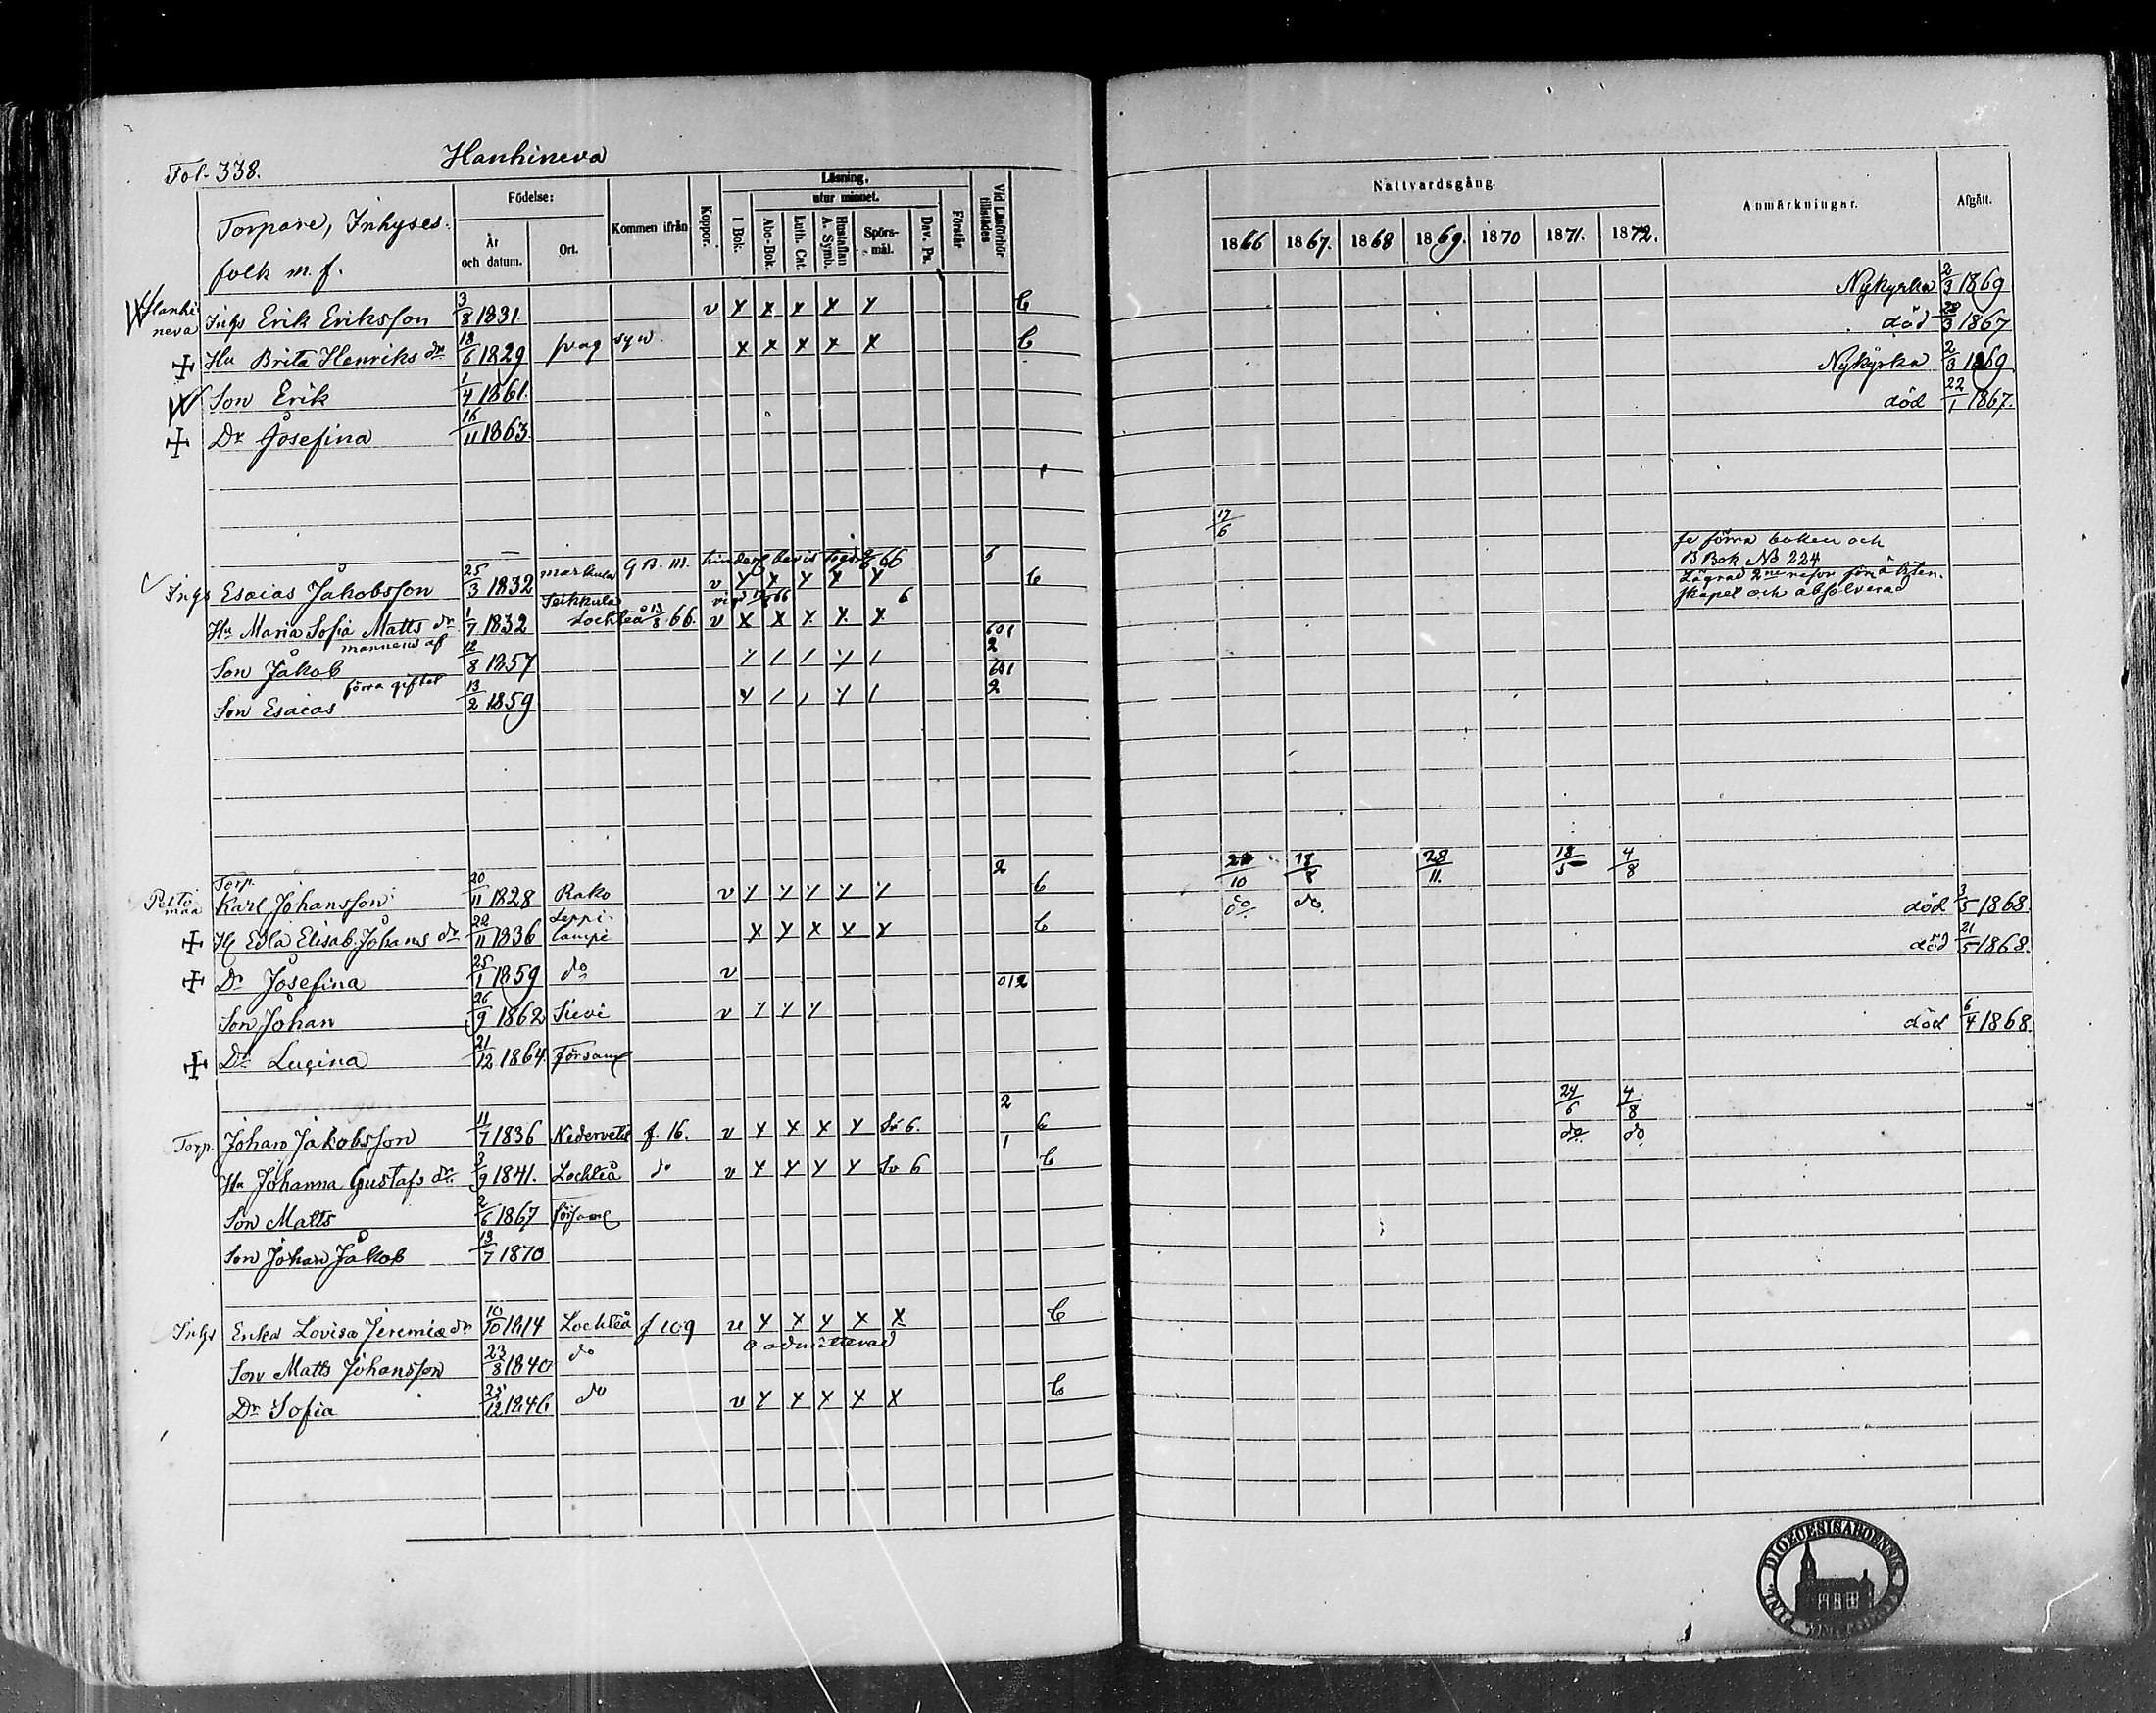 Fol. 338. Hanhineva
Torpare, Inhyses-
folk m. f.
Födelse:
År och datum.
Ort.
Kommen ifrån
Koppor.
Läsning.
utur minnet.
I Bok.
Abc-Bok.
Luth. Cat.
Hustaflan A. Symb.
Spörs-mål.
Dav. Ps.
Förstår
Vid Läsförhör tillstädes
Nattvardsgång.
1866 1867. 1868 1869. 1870 1871. 1872.
Anmärkningar.
Afgått.
Hanhineva Inhs Erik Eriksson 3/8 1831. v x x x x x C Nykyrka 2/3 1869
Hu Brita Henriks dr 18/6 1829 x x x x x C död 28/3 1867
Son Erik 1/4 1861. Nykyrka 2/3 1869
Dr Josefina 16/11 1863 död 22/1 1867.
17/6
G B. III. hindersl bevis 66 6
Inhs Esaias Jakobsson 25/3 1832 v x x x x x C
se förra boken och
B Bok No 224
Lägrad 2ne resor före äkten-
skapet och absolverad
Hu Maria Sofia Matts dr 1/7 1832 Lochteå 13/8 66. v x x x x x 6
mannens af
Son Jakob 12/8 1857 601 2
förra giftet
Son Esaias 13/2 1859 601 2
Peltomaa Torp.
Karl Johansson 20/11 1828 v C 2 10 18/8 28/11. 18/5 4/8
H Edla Elisab. Johans dr 22/11 1836 Leppilampi x x x x x C do do död 3/5 1868.
Dr Josefina 25/1 1859 do v död 21/5 1868.
Son Johan 26/9 1862 Sievi v 012
Dr Lucina 21/12 1864 Församl död 6/4 1868.
Torp. Johan Jakobsson 11/7 1836 Nedervetil f. 16. v x x x x Sv 6. 2 C 24/6 4/8
Hu Johanna Gustafs dr. 3/9 1841. Lochteå do v x x x x Sv 6 1 C do do
Son Matts 2/6 1867 församl
Son Johan Jakob 13/7 1870
Inhs Enka Lovisa Jeremiæ dr 10/10 1814 Lochteå f 109 v x x x x x C
Son Matts Johansson 23/8 1840 do oadmitterad
Dr Sofia 25/12 1846 do v x x x x x C
DIOECESIS ABOENSIS